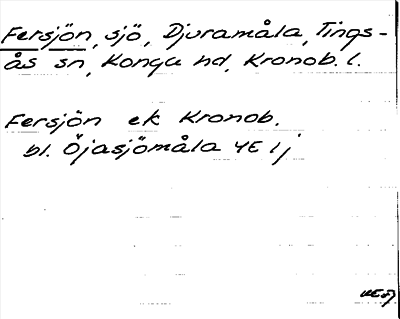 Fersjön, sjö, Djuramåla, Tings-
ås sn, Konga hd, Kronob. l.
Fersjön ek Kronob.
bl. Öjasjömåla 4E 1j